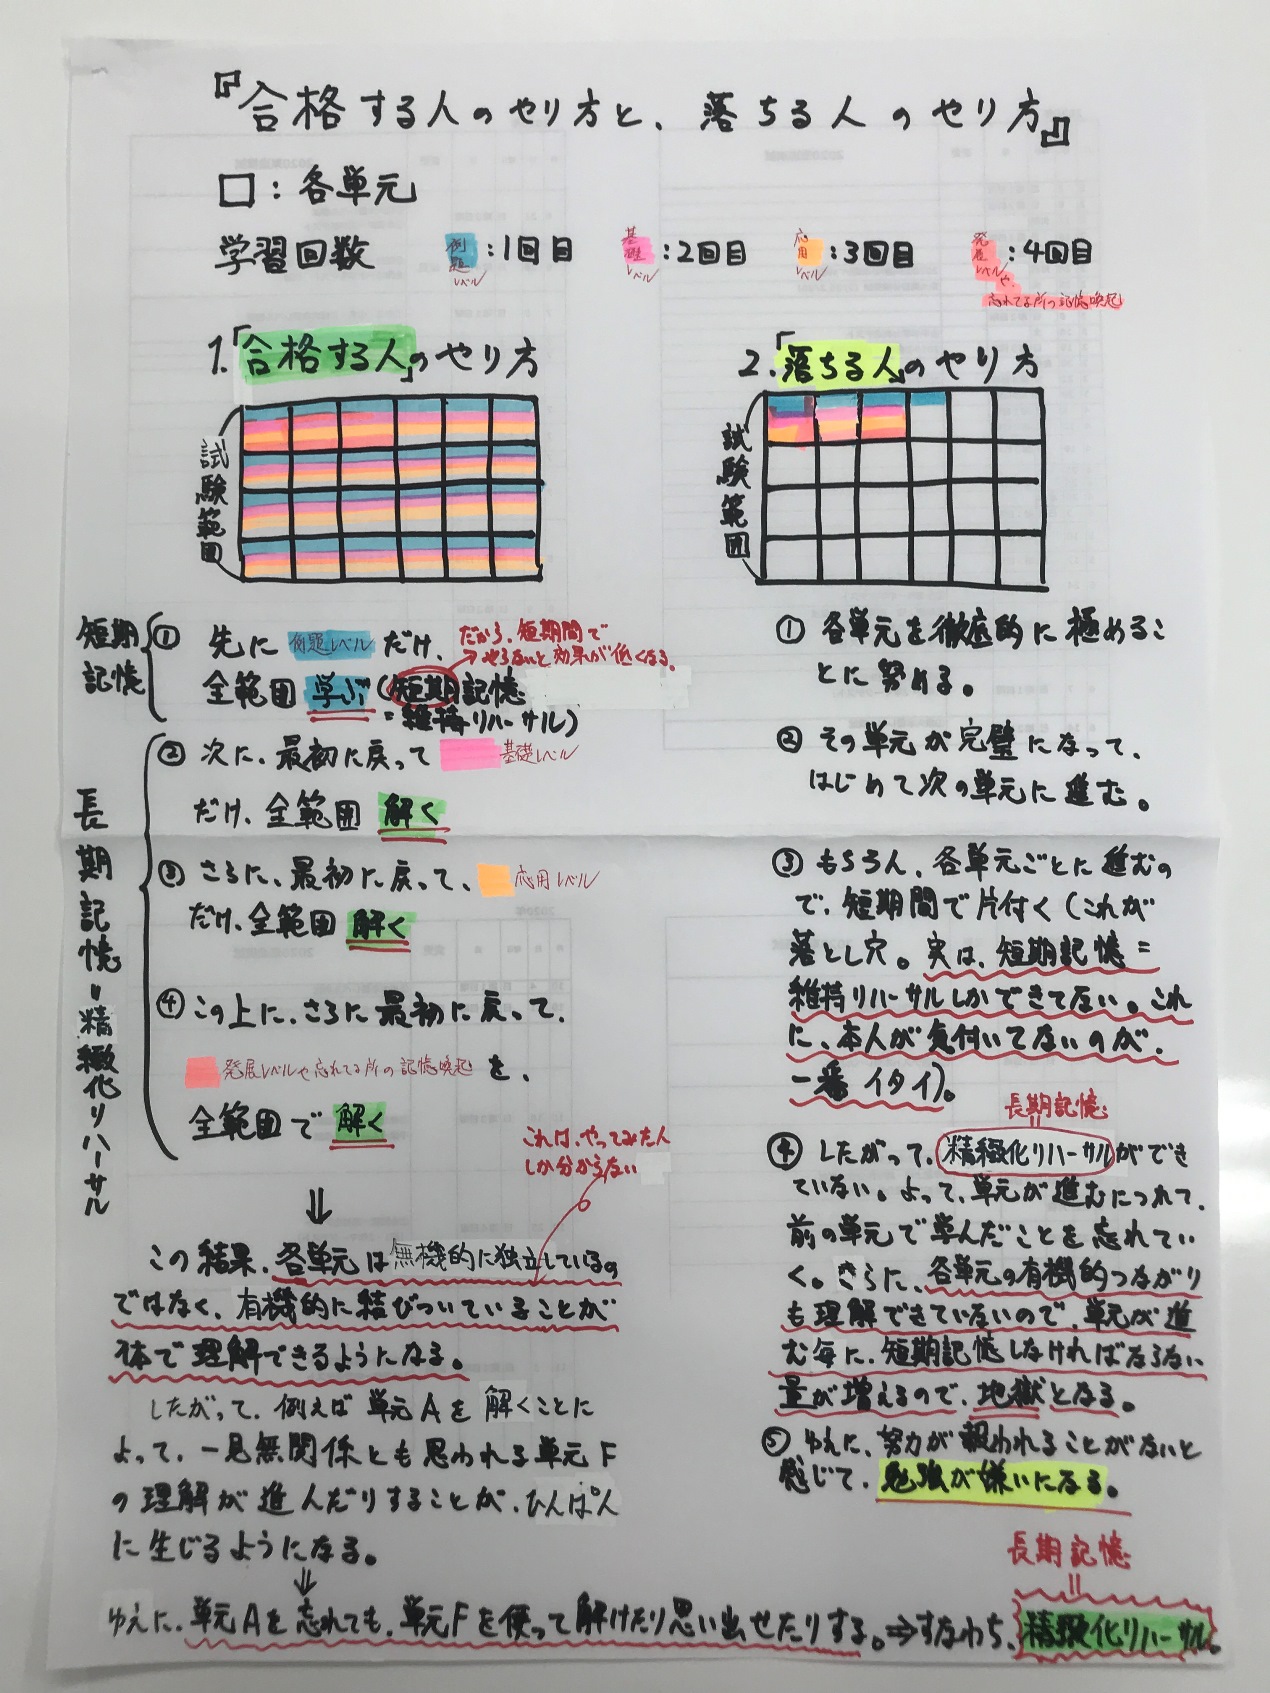 『合格する人のやり方と、落ちる人のやり方』
□:各単元
学習回数
例題レベル:1回目
基礎レベル:2回目
応用レベル:3回目
発展レベルや忘れてる所の記憶喚起:4回目
1.「合格する人」のやり方
試験範囲
短期記憶
① 先に例題レベルだけ、
全範囲学ぶ(短期記憶
=維持リハーサル)
だから、短期間で
やらないと効果が低くなる。
長期記憶=精緻化リハーサル
② 次に、最初に戻って基礎レベル
だけ、全範囲解く
③ さらに、最初に戻って、応用レベル
だけ、全範囲解く
④ この上に、さらに最初に戻って、
発展レベルや忘れてる所の記憶喚起を、
全範囲で解く
これは、やってみた人
しか分からない
⇓
この結果、各単元は無機的に独立しているの
ではなく、有機的に結びついていることが
体で理解できるようになる。
したがって、例えば単元Aを解くことに
よって、一見無関係とも思われる単元F
の理解が進んだりすることが、ひんぱん
に生じるようになる。
⇓
2.「落ちる人」のやり方
試験範囲
① 各単元を徹底的に極めるこ
とに努める。
② その単元が完璧になって、
はじめて次の単元に進む。
③ もちろん、各単元ごとに進むの
で、短期間で片付く(これが
落とし穴。実は、短期記憶=
維持リハーサルしかできてない。これ
に、本人が気付いてないのが、
一番イタイ)。
長期記憶
=
④ したがって、精緻化リハーサルができ
ていない。よって、単元が進むにつれて、
前の単元で学んだことを忘れてい
く。さらに、各単元の有機的つながり
も理解できていないので、単元が進
む毎に、短期記憶しなければならない
量が増えるので、地獄となる。
⑤ ゆえに、努力が報われることがないと
感じて、勉強が嫌いになる。
長期記憶
=
ゆえに、単元Aを忘れても、単元Fを使って解けたり思い出せたりする。⇒すなわち、精緻化リハーサル。